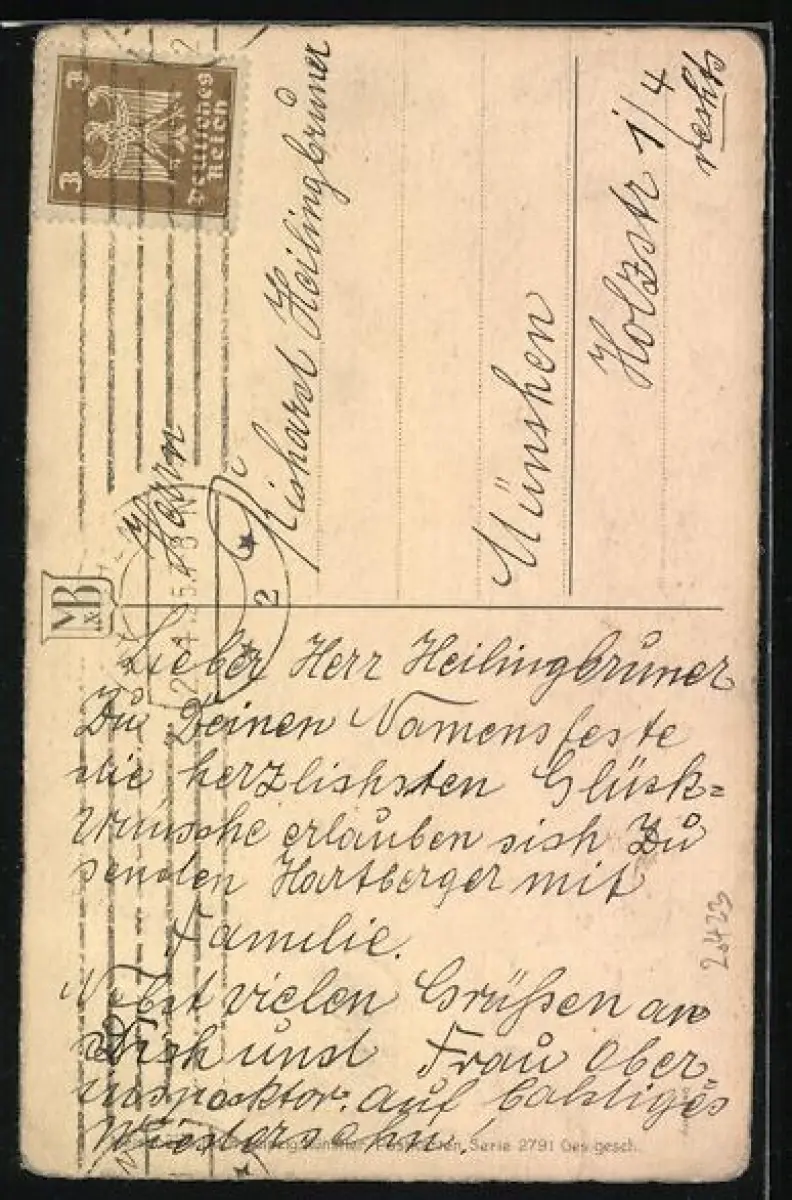 3 3
Deutsches
Reich
Herrn
Richard Heilingbruner
München
Holzstr 1/4
rechts
M&B
2
Lieber Herr Heilingbruner
Zu Deinen Namensfeste
die herzlichsten Glück=
wünsche erlauben sich Zu
senden Hartberger mit
Familie.
Nebst vielen Grüßen an
Dich und Frau Ober
inspektor. auf baldiges
Wiedersehn!
28423
Serie 2791 Ges. gesch.